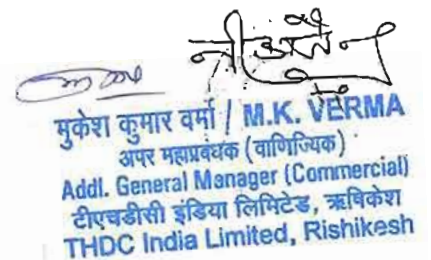 मुकेश कुमार वर्मा / M.K. VERMA
अपर महाप्रबंधक (वाणिज्यिक)
Addl. General Manager (Commercial)
टीएचडीसी इंडिया लिमिटेड, ऋषिकेश
THDC India Limited, Rishikesh